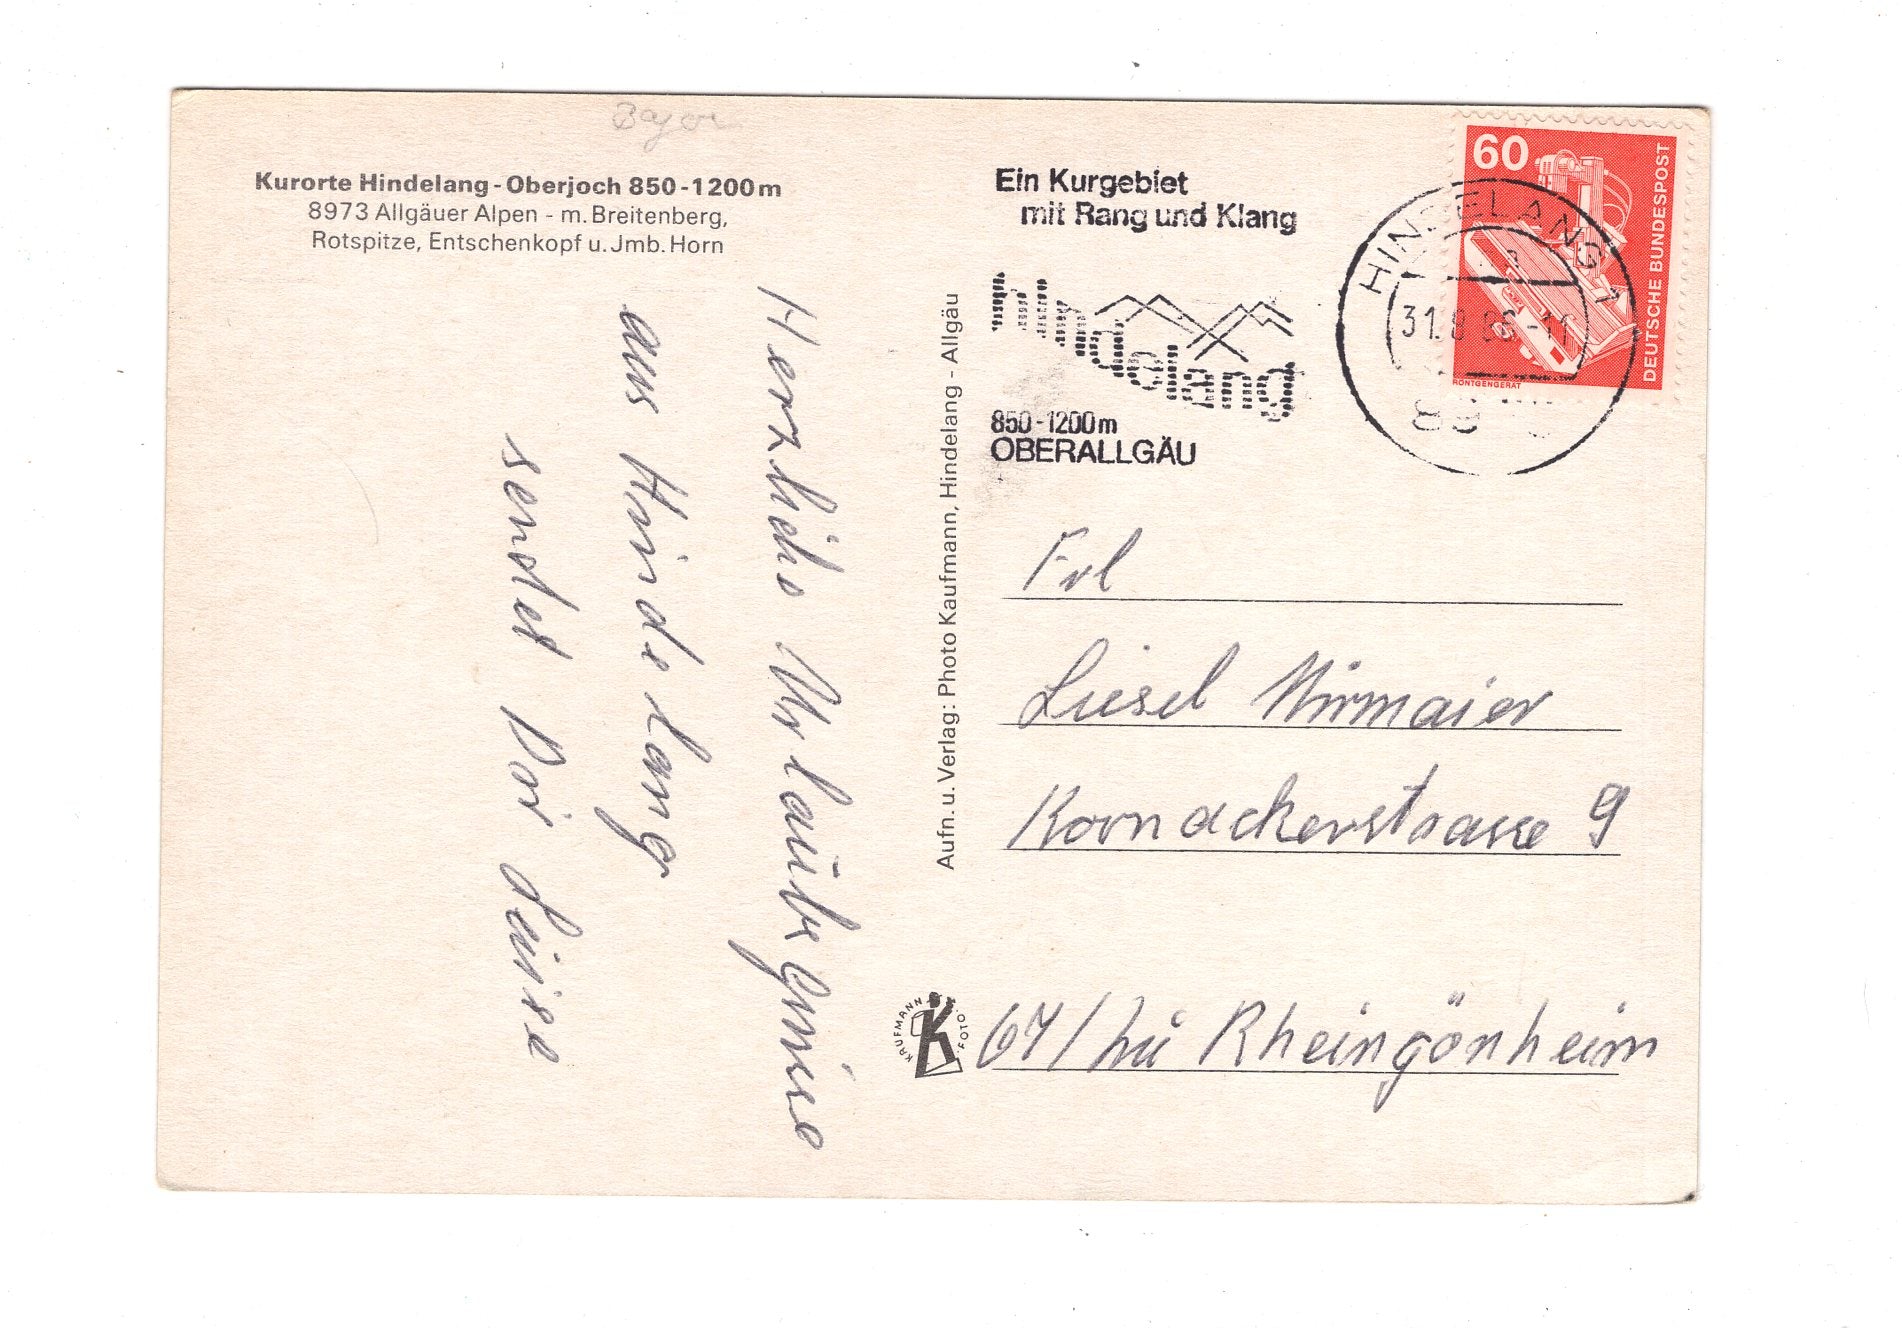 Bayer
Kurorte Hindelang-Oberjoch 850-1200m
8973 Allgäuer Alpen - m. Breitenberg,
Rotspitze, Entschenkopf u. Jmb. Horn
Herzliche Urlaubsgrüsse
aus Hindelang
sendet Dir Luise
Aufn. u. Verlag: Photo Kaufmann, Hindelang - Allgäu
KAUFMANN FOTO
K
Ein Kurgebiet
mit Rang und Klang
Hindelang
850-1200m
OBERALLGÄU
HINDELANG 1
31.8.86.-11
60
DEUTSCHE BUNDESPOST
RÖNTGENGERÄT
Frl
Liesel Nirmaier
Kornackerstrasse 9
67/Lu Rheingönheim